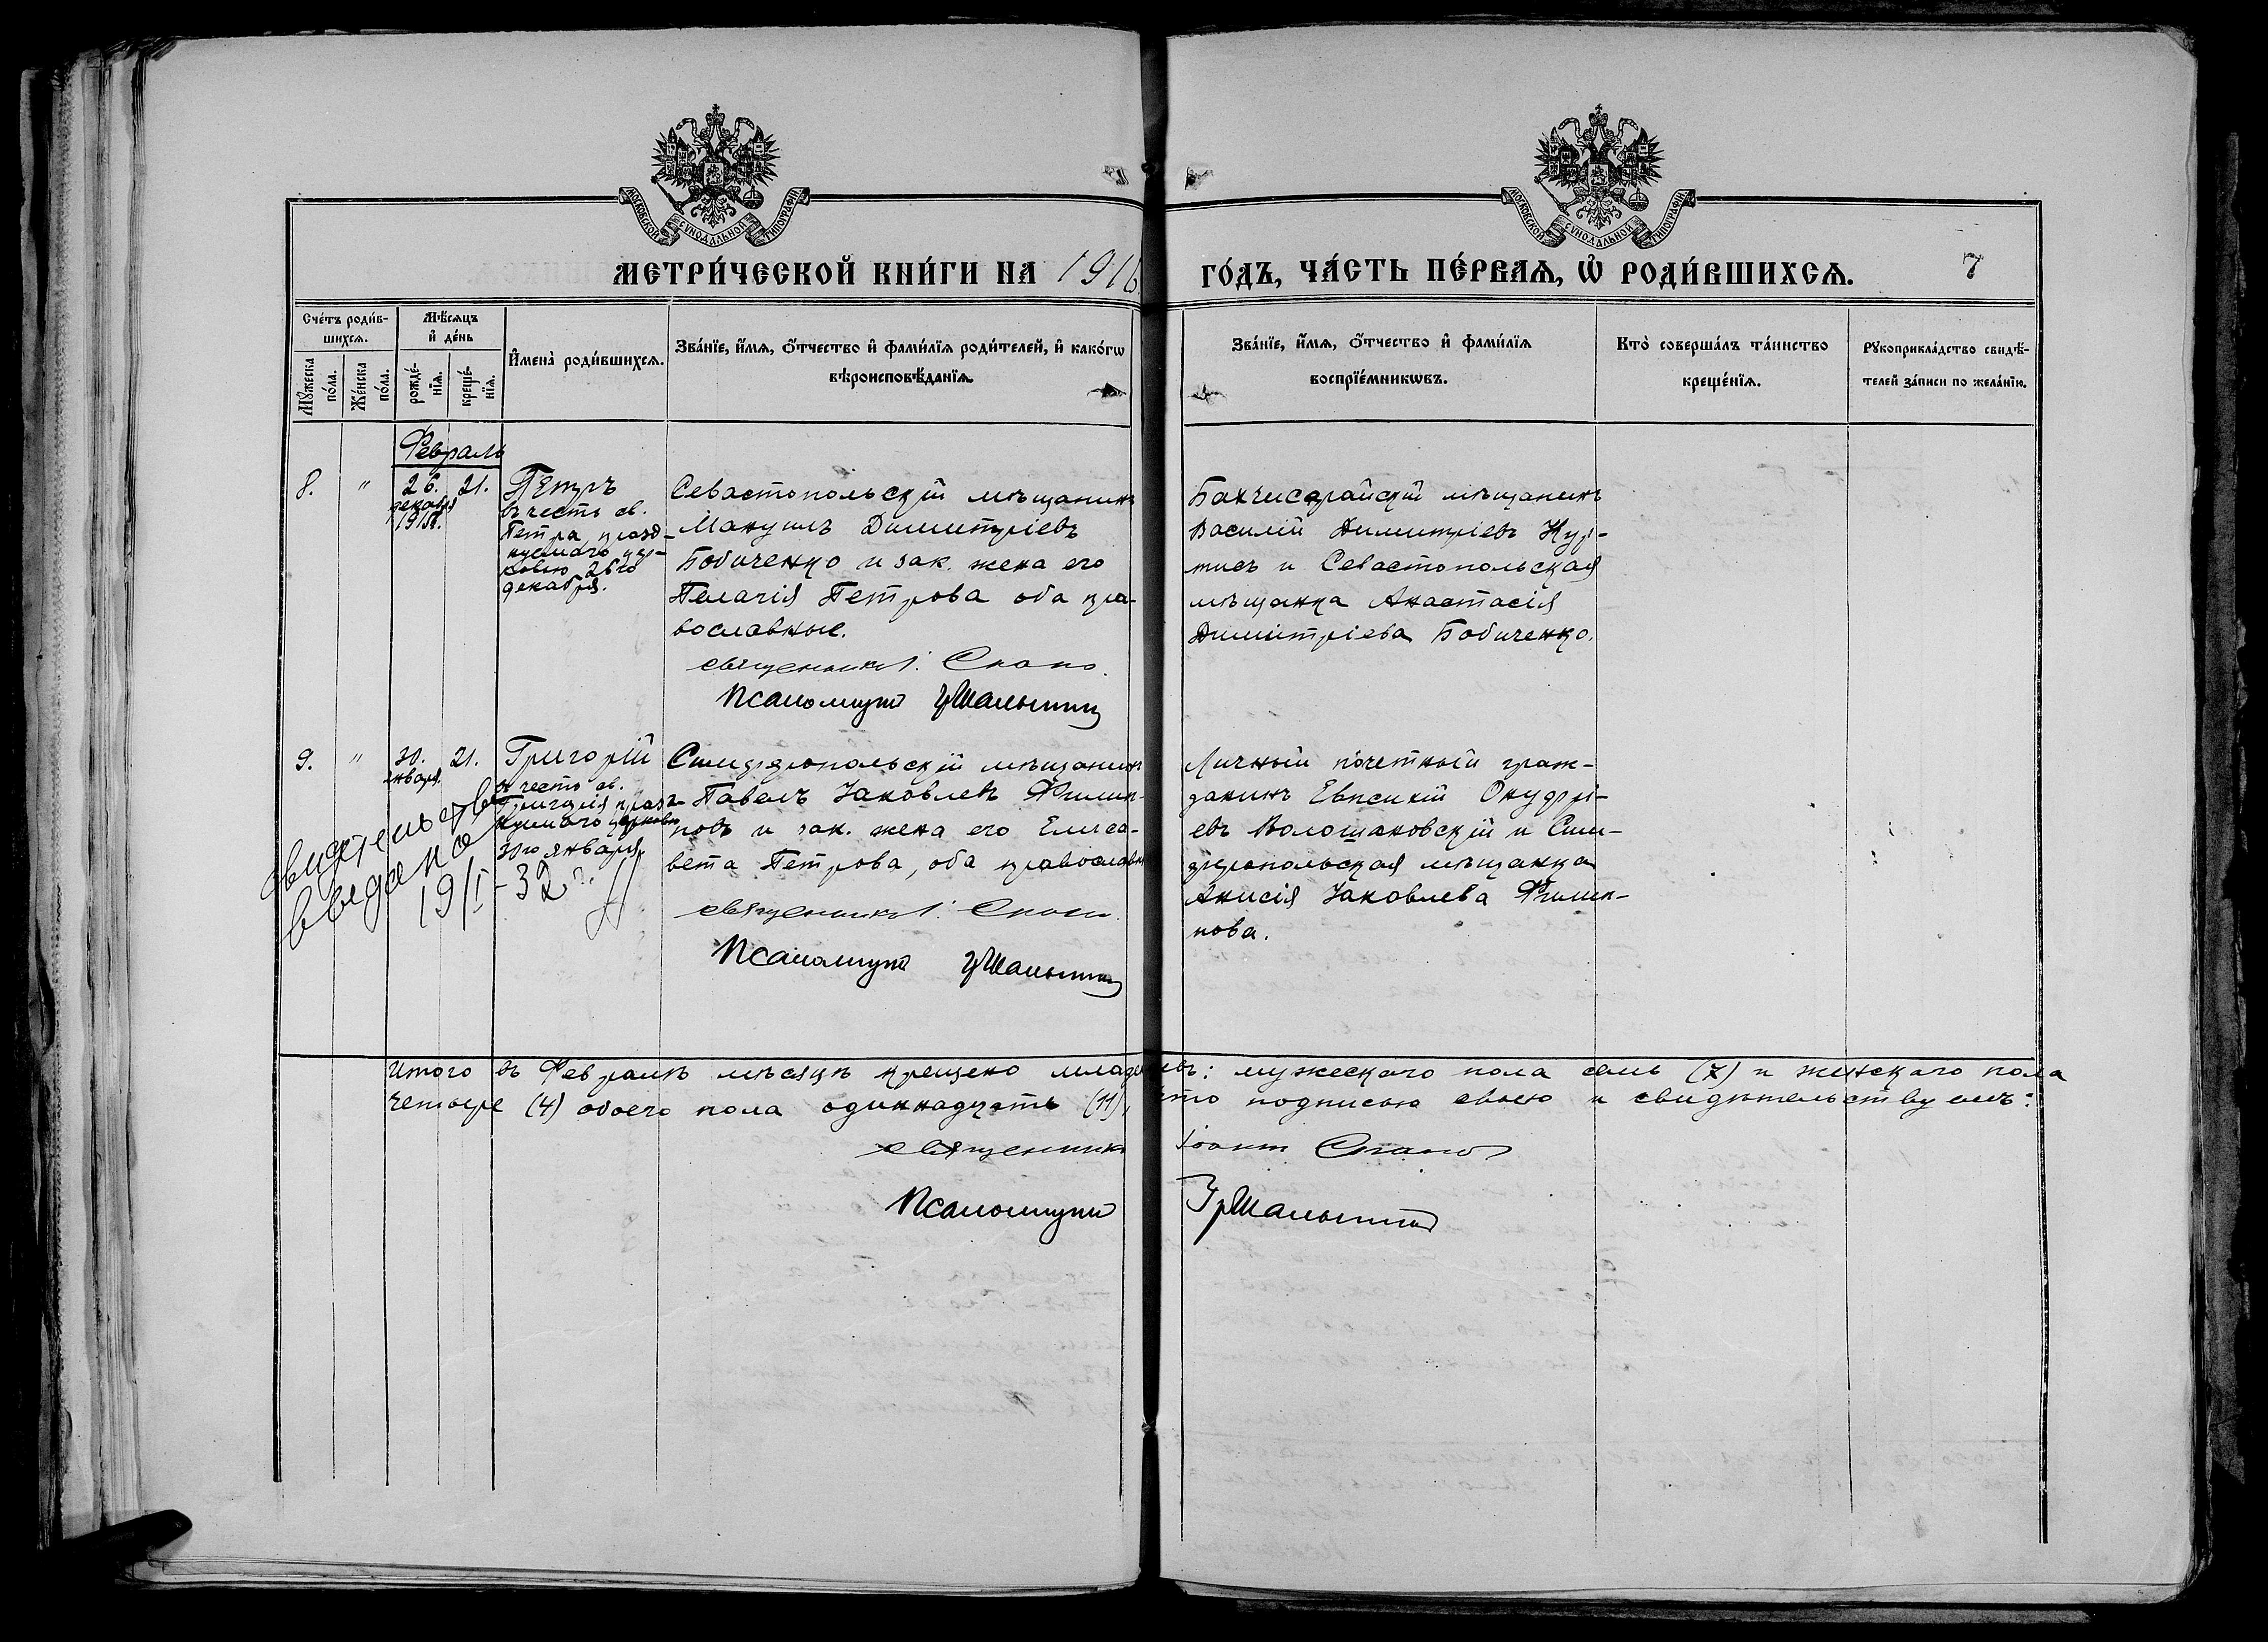 МОСКОВСКОЙ СѴНОДАЛЬНОЙ ТИПОГРАФІИ
МОСКОВСКОЙ СѴНОДАЛЬНОЙ ТИПОГРАФІИ
МЕТРИ́ЧЕСКОЙ КНИ́ГИ НА 1916
ГО́ДЪ, ЧА́СТЬ ПЕ́РВАѦ, Ѡ҆ РОДИ́ВШИХСѦ.
7
Сче́тъ роди́в-
шихсѧ.
Мꙋ́жеска
по́ла.
Же́нска
по́ла.
Мѣ́сѧцъ
и҆ де́нь
рожде́-
нїѧ.
креще́-
нїѧ.
И҆мена̀ роди́вшихсѧ.
Зва́нїе, и҆́мѧ, ѻ҆́тчество и҆ фами́лїѧ роди́телей, и҆ како́гѡ
вѣроисповѣ́данїѧ.
Зва́нїе, и҆́мѧ, ѻ҆́тчество и҆ фами́лїѧ
воспрїе́мникѡвъ.
Кто̀ соверша́лъ та́инство
креще́нїѧ.
Рꙋкоприкла́дство свидѣ́-
телей за́писи по жела́нїю.
Февраль
8.
"
26.
декабря
1915г.
21.
Петръ
въ честь св.
Петра, празд-
нуемаго цер-
ковью 26го
декабря.
Севастопольскій мѣщанинъ
Мануилъ Димитріевъ
Бобиченко и зак. жена его
Пелагія Петрова оба пра-
вославные.
священникъ І. Спано.
Псаломщикъ
Бахчисарайскій мѣщанинъ
Василій Димитріевъ Кур-
тисъ и Севастопольская
мѣщанка Анастасія
Димитріева Бобиченко.
9.
"
30.
января.
21.
Григорій
въ честь св.
Григорія празд-
нуемаго церковью
30го января.
Симферопольскій мѣщанинъ
Павелъ Іаковлевъ Филип-
повъ и зак. жена его Елиса-
вета Петрова, оба православн
священникъ І. Спано.
Псаломщикъ
Личный почетный граж-
данинъ Евпсихій Онуфрі-
евъ Волошановскій и Сим-
феропольская мѣщанка
Анисія Іаковлева Филип-
пова.
Свидетельство
выдано
19/I-32г.
Итого въ Февралѣ мѣсяцѣ крещено младенцевъ: мужескаго пола семь (7) и женскаго пола
четыре (4) обоего пола одиннадцать (11), что подписью своею и свидѣтельствуемъ:
священникъ Іоаннъ Спано
Псаломщикъ